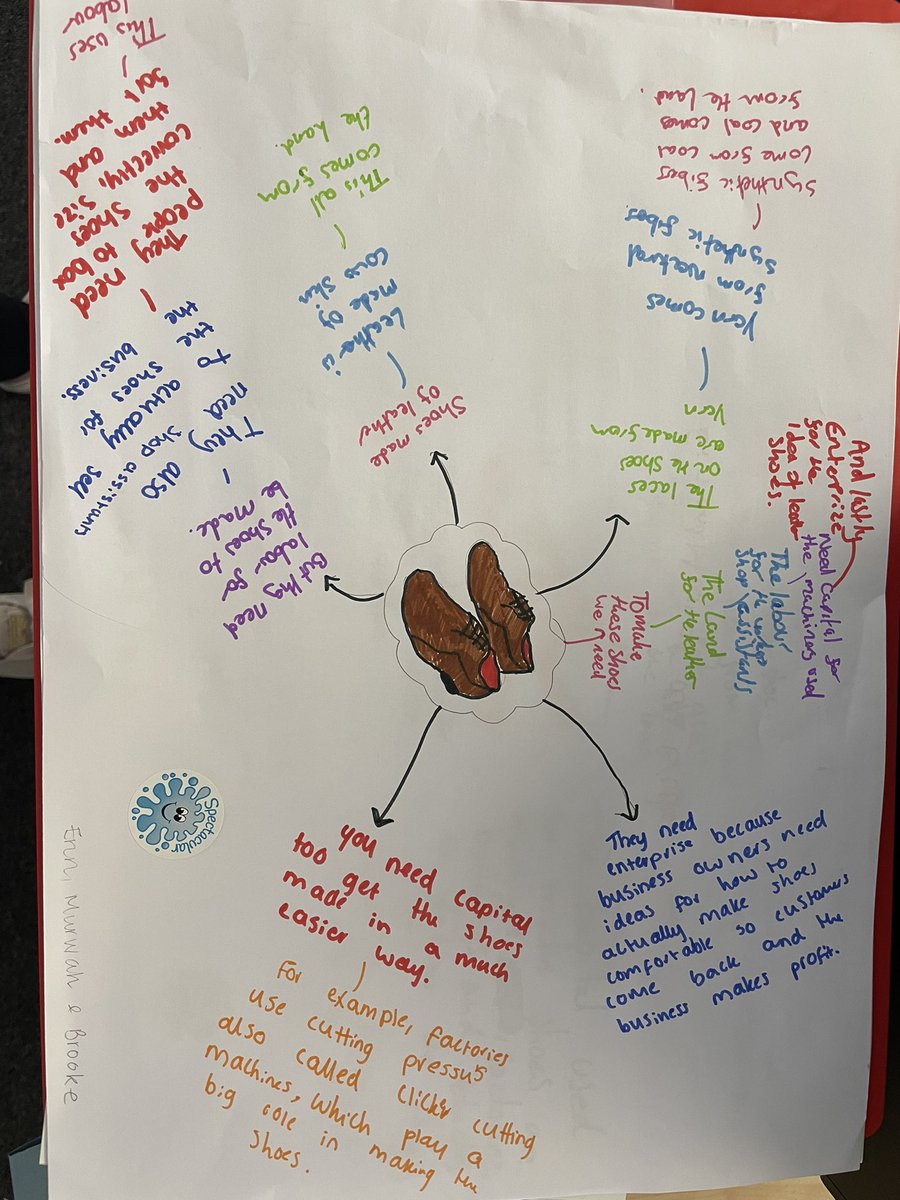 Shoes made
of leather
Leather is
made of
cows skin
This all
comes from
the land.
The laces
on the shoes
are made from
Yarn
Yarn comes
from natural
synthetic fibes
synthetic fibes
come from coal
and coal comes
from the land.
To make
these shoes
we need
The Land
for the leather
The labour
for the
shop assistants
Need capital for
the machines used
And lastly
Enterprize
for the
idea of leather
shoes.
They need
enterprise because
business owners need
ideas for how to
actually make shoes
comfortable so customers
come back and the
business makes profit.
you need capital
too get the shoes
made in a much
easier way.
For example, factories
use cutting pressus
also called clicker cutting
machines, which play a
big role in making the
shoes.
But they need
labor for
the shoes to
be made.
They also
need shop assistants
to actually sell
the shoes for
the business.
They need
people to box
the shoes
correctly, size
them and
sort them.
This uses
labour
Spectacular
Erin, Murwah & Brooke